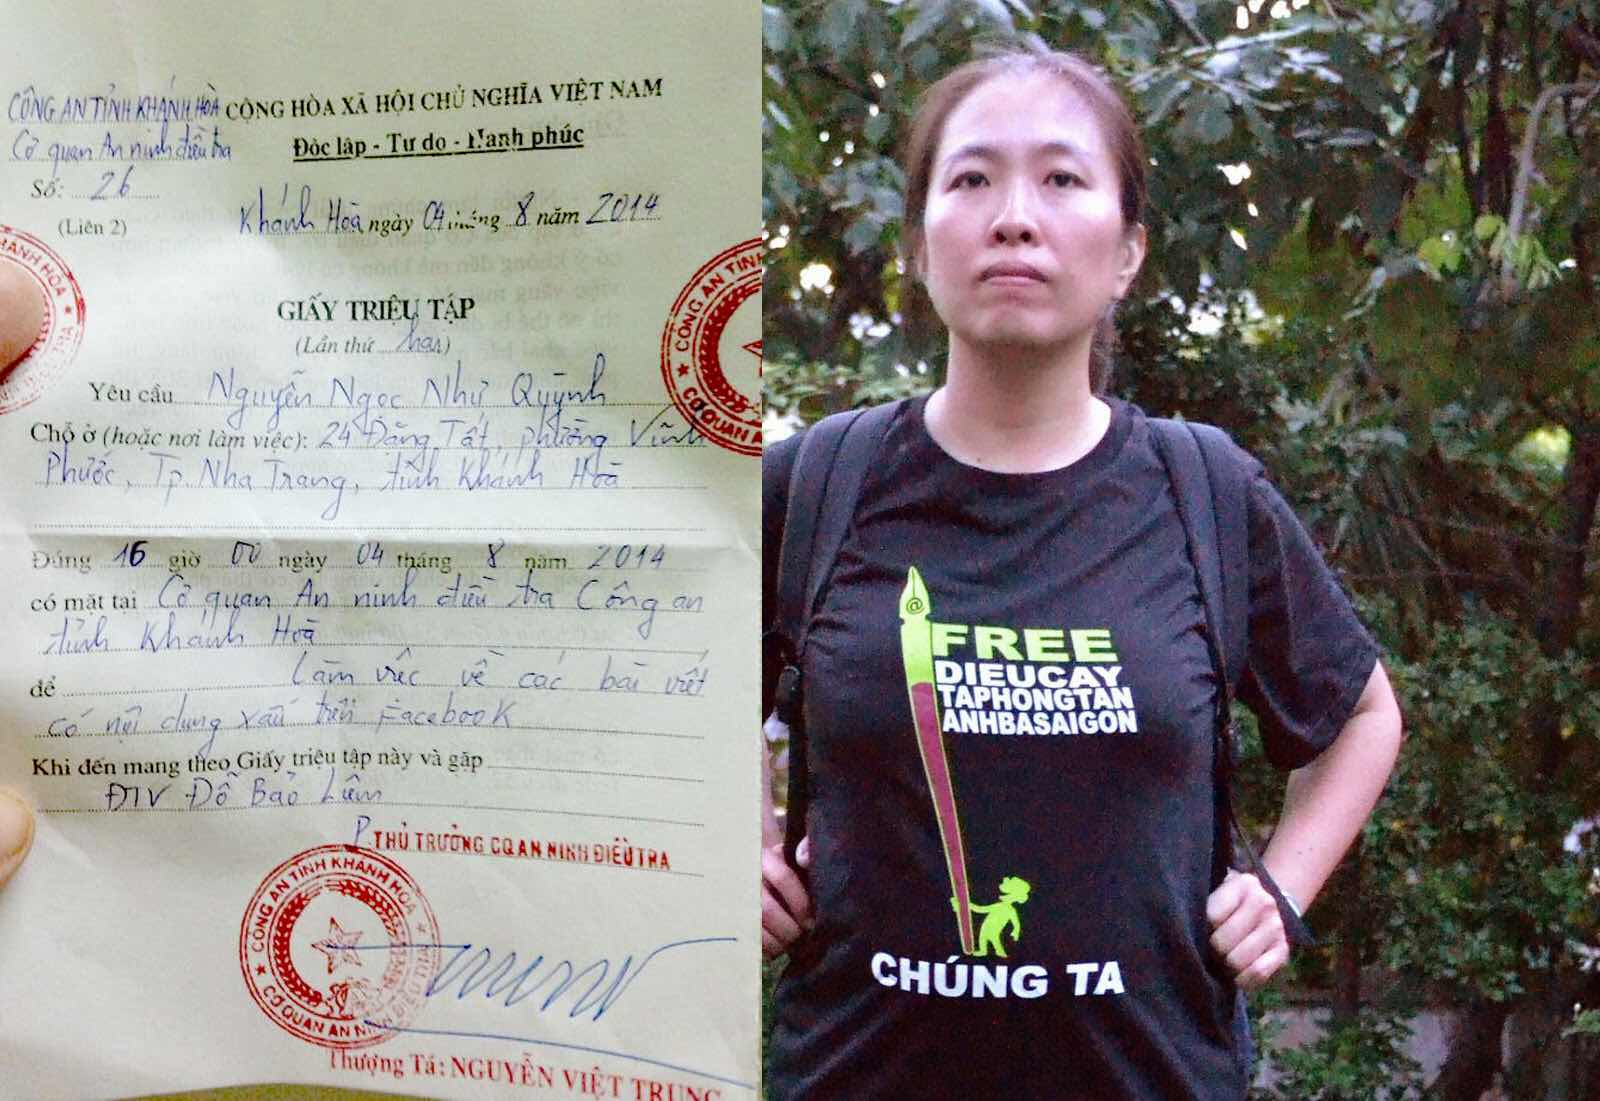 CÔNG AN TỈNH KHÁNH HÒA
CỘNG HÒA XÃ HỘI CHỦ NGHĨA VIỆT NAM
Cơ quan An ninh điều tra
Độc lập - Tự do - Hạnh phúc
Số: 26
(Liên 2)
Khánh Hòa ngày 04 tháng 8 năm 2014
GIẤY TRIỆU TẬP
(Lần thứ hai)
Yêu cầu Nguyễn Ngọc Như Quỳnh
Chỗ ở (hoặc nơi làm việc): 24 Đặng Tất, phường Vĩnh
Phước, Tp. Nha Trang, tỉnh Khánh Hoà
Đúng 16 giờ 00 ngày 04 tháng 8 năm 2014
có mặt tại Cơ quan An ninh điều tra Công an
tỉnh Khánh Hoà
để Làm việc về các bài viết
có nội dung xấu trên Facebook
Khi đến mang theo Giấy triệu tập này và gặp
ĐTV Đỗ Bảo Liêm
P. THỦ TRƯỞNG CQAN NINH ĐIỀU TRA
CÔNG AN TỈNH KHÁNH HÒA
CƠ QUAN AN NINH ĐIỀU TRA
Thượng Tá: NGUYỄN VIỆT TRUNG
@
FREE
DIEUCAY
TAPHONGTAN
ANHBASAIGON
CHÚNG TA